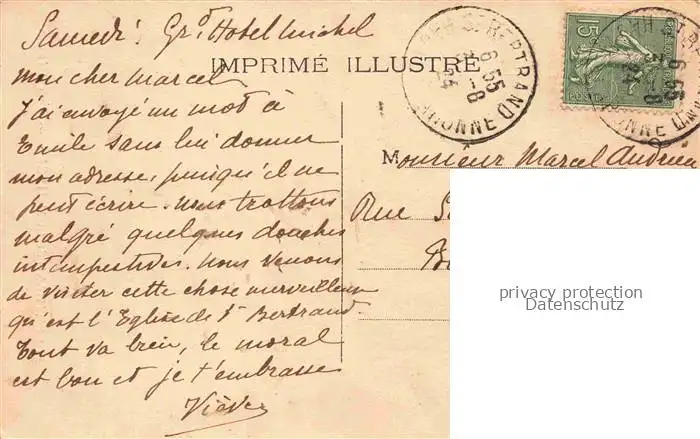 Samedi. Grd Hotel Michel
mon cher Marcel
IMPRIMÉ ILLUSTRÉ
J'ai envoyé un mot à
Emile sans lui donner
mon adresse, puisqu'il ne
peut écrire. nous trottons
malgré quelques douches
intempestives. nous venons
de visiter cette chose merveilleuse
qu'est l'Eglise de St Bertrand.
Tout va bien, le moral
est bon et je t'embrasse
BERTRAND
6 55
3 - 8
24
GARONNE
15
6 55
3 - 8
24
Monsieur Marcel
Rue
privacy protection
Datenschutz